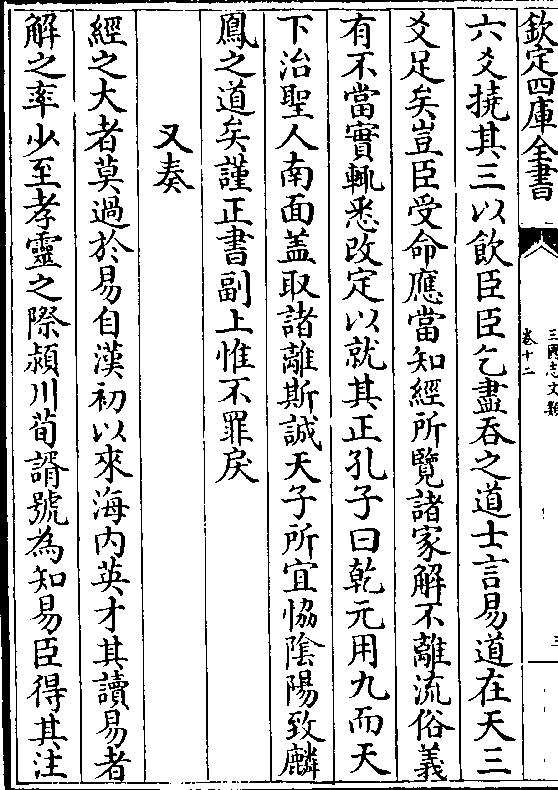 欽定四庫全書
三國志文類
卷十二
三
六爻撓其三以飲臣臣乞盡吞之道士言易道在天三
爻足矣豈臣受命應當知經所覽諸家解不離流俗義
有不當實輒悉改定以就其正孔子曰乾元用九而天
下治聖人南面盖取諸離斯誠天子所宜恊陰陽致麟
鳳之道矣謹正書副上惟不罪戾
又奏
經之大者莫過於易自漢初以來海内英才其讀易者
解之率少至孝靈之際潁川荀諝號為知易臣得其注